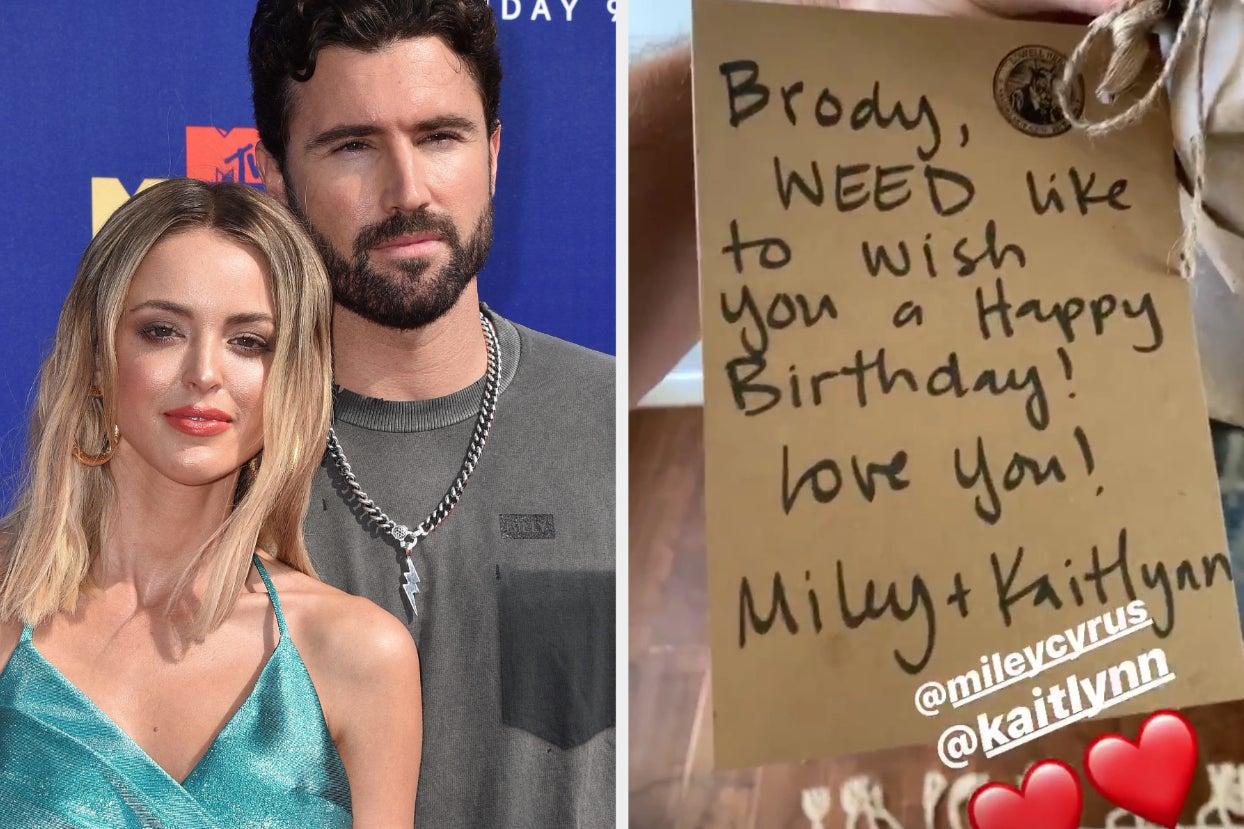 DAY
MTV
Brody,
WEED like
to wish
you a Happy
Birthday!
Love you!
Miley + Kaitlynn
@mileycyrus
@kaitlynn